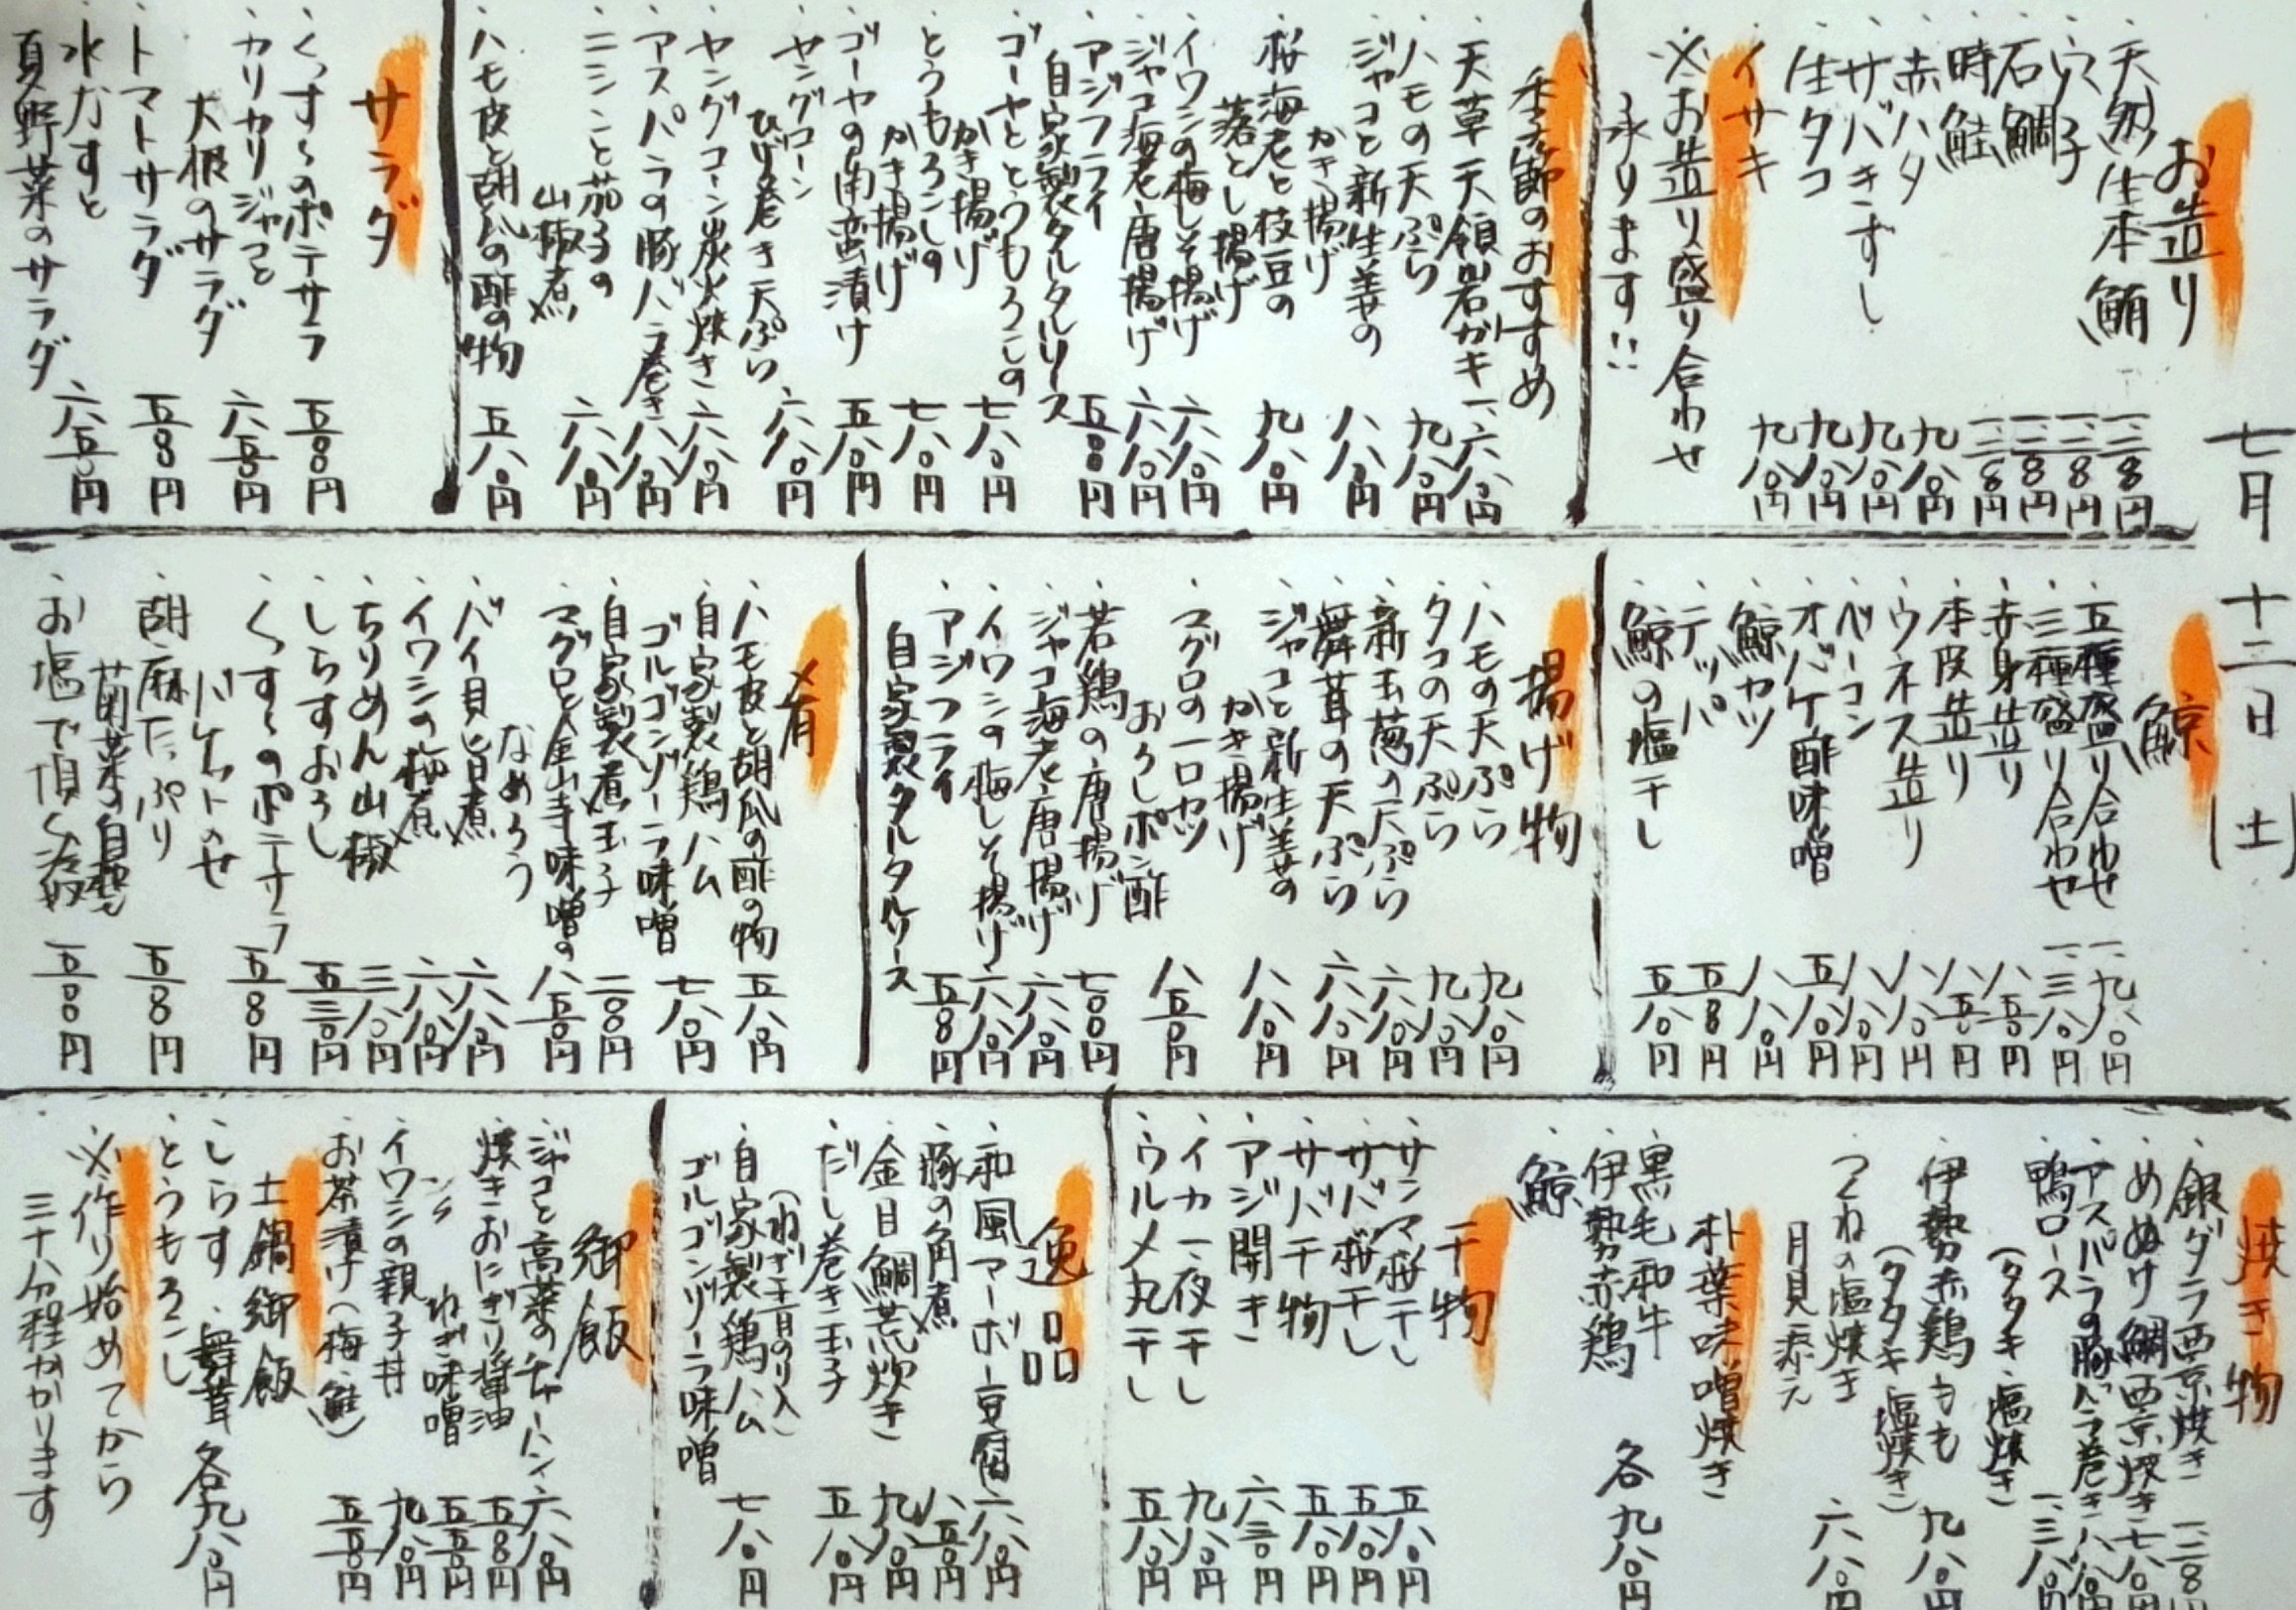 七月十二日(土)
お造り
・天然生本鮪 一、二八〇円
・うに 一、二八〇円
・石鯛 一、二八〇円
・時鮭 一、二八〇円
・赤ハタ 九八〇円
・サバきずし 九八〇円
・生タコ 九八〇円
・イサキ 九八〇円
※お造り盛り合わせ
承ります!!
季節のおすすめ
・天草 天領岩ガキ 一、六八〇円
・ハモの天ぷら 九八〇円
・ジャコと新生姜の
かき揚げ 八八〇円
・桜海老と枝豆の
落とし揚げ 九八〇円
・イワシの梅しそ揚げ 六八〇円
・ジャコ海老唐揚げ 六八〇円
・アジフライ
自家製タルタルソース 五八〇円
・ゴーヤととうもろこしの
かき揚げ 七八〇円
・とうもろこしの
かき揚げ 七八〇円
・ゴーヤの南蛮漬け 五八〇円
・ヤングコーン
ひげ巻き天ぷら 六八〇円
・ヤングコーン炭火焼き 六八〇円
・アスパラの豚バラ巻き 八八〇円
・ニシンと茄子の
山椒煮 六八〇円
・ハモ皮と胡瓜の酢の物 五八〇円
サラダ
・くっすぃのポテサラ 五八〇円
・カリカリジャコと
大根のサラダ 六五〇円
・トマトサラダ 五八〇円
・水なすと
夏野菜のサラダ 六五〇円
鯨
・五種盛り合わせ 一、九八〇円
・三種盛り合わせ 一、三八〇円
・赤身造り 八五〇円
・本皮造り 八五〇円
・ウネス造り 八八〇円
・ベーコン 八八〇円
・オバケ酢味噌 五八〇円
・鯨カツ 八八〇円
・テッパ 五八〇円
・鯨の塩干し 五八〇円
揚げ物
・ハモの天ぷら 九八〇円
・タコの天ぷら 九八〇円
・新玉葱の天ぷら 六八〇円
・舞茸の天ぷら 六八〇円
・ジャコと新生姜の
かき揚げ 八八〇円
・マグロの一口カツ
おろしポン酢 八五〇円
・若鶏の唐揚げ 七〇〇円
・ジャコ海老唐揚げ 六八〇円
・イワシの梅しそ揚げ 六八〇円
・アジフライ
自家製タルタルソース 五八〇円
肴
・ハモ皮と胡瓜の酢の物 五八〇円
・自家製鶏ハム
ゴルゴンゾーラ味噌 七八〇円
・自家製煮玉子 二〇〇円
・マグロと金山寺味噌の
なめろう 八五〇円
・バイ貝旨煮 六八〇円
・イワシの梅煮 六八〇円
・ちりめん山椒 三八〇円
・しらすおろし 五三〇円
・くっすぃのポテサラ
バケットのせ 五八〇円
・胡麻たっぷり
菊菜の白和え 五八〇円
・お塩で頂く冷奴 五〇〇円
焼き物
・銀ダラ西京焼き 一、二八〇円
・めぬけ鯛西京焼き 七八〇円
・アスパラの豚バラ巻き 八八〇円
・鴨ロース
(タタキ・塩焼き) 一、三八〇円
・伊勢赤鶏もも
(タタキ・塩焼き) 九八〇円
・つくねの塩焼き
月見添え 六八〇円
朴葉味噌焼き
・黒毛和牛
・伊勢赤鶏
・鯨
各九八〇円
干物
・サンマ桜干し 五八〇円
・サバ桜干し 五八〇円
・サバ干物 五八〇円
・アジ開き 六三〇円
・イカ一夜干し 九八〇円
・ウルメ丸干し 五八〇円
逸品
・和風マーボー豆腐 六八〇円
・豚の角煮 八五〇円
・金目鯛荒炊き 九八〇円
・だし巻き玉子
(ねぎ・青のり入) 五八〇円
・自家製鶏ハム
ゴルゴンゾーラ味噌 七八〇円
御飯
・ジャコと高菜のチャーハン 六八〇円
・焼きおにぎり醤油 五八〇円
〃 ねぎ味噌 五五〇円
・イワシの親子丼 九八〇円
・お茶漬け(梅・鮭) 五五〇円
土鍋御飯
・しらす・舞茸
・とうもろこし
各九八〇円
※作り始めてから
三十八分程かかります